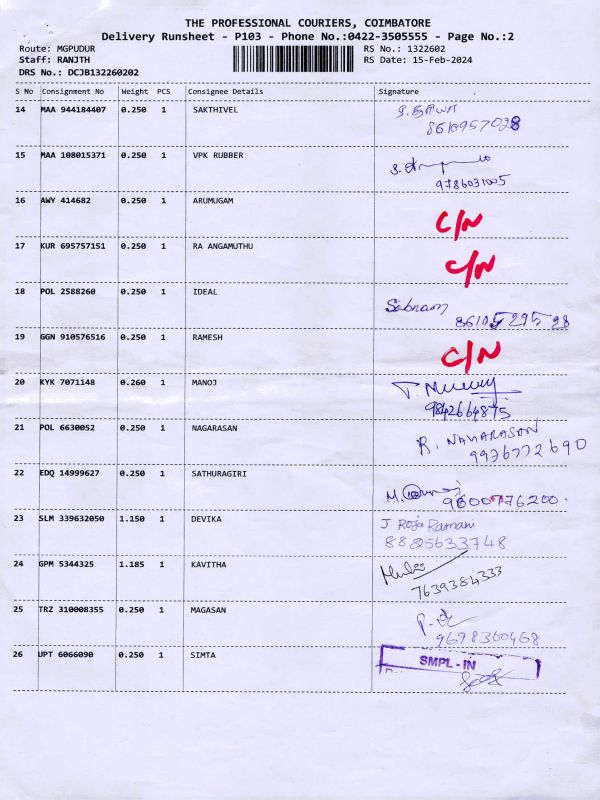 THE PROFESSIONAL COURIERS, COIMBATORE
Delivery Runsheet - P103 - Phone No.:0422-3505555 - Page No.:2
Route: MGPUDUR RS No.: 1322602
Staff: RANJTH RS Date: 15-Feb-2024
DRS No.: DCJB132260202
S No Consignment No Weight PCS Consignee Details Signature
14 MAA 944184407 0.250 1 SAKTHIVEL
8610957028
15 MAA 108015371 0.250 1 VPK RUBBER
9786031005
16 AWY 414682 0.250 1 ARUMUGAM C/N
17 KUR 695757151 0.250 1 RA ANGAMUTHU C/N
18 POL 2588260 0.250 1 IDEAL Sabnam
8610529528
19 GGN 910576516 0.250 1 RAMESH C/N
20 KYK 7071148 0.260 1 MANOJ
9842664875
21 POL 6630052 0.250 1 NAGARASAN R. NAVARASON
9976772690
22 EDQ 14999627 0.250 1 SATHURAGIRI
9600776200.
23 SLM 339632050 1.150 1 DEVIKA J Roja Ramani
8825633748
24 GPM 5344325 1.185 1 KAVITHA
7639384333
25 TRZ 310008355 0.250 1 MAGASAN
9698360468
26 UPT 6066090 0.250 1 SIMTA SMPL-IN